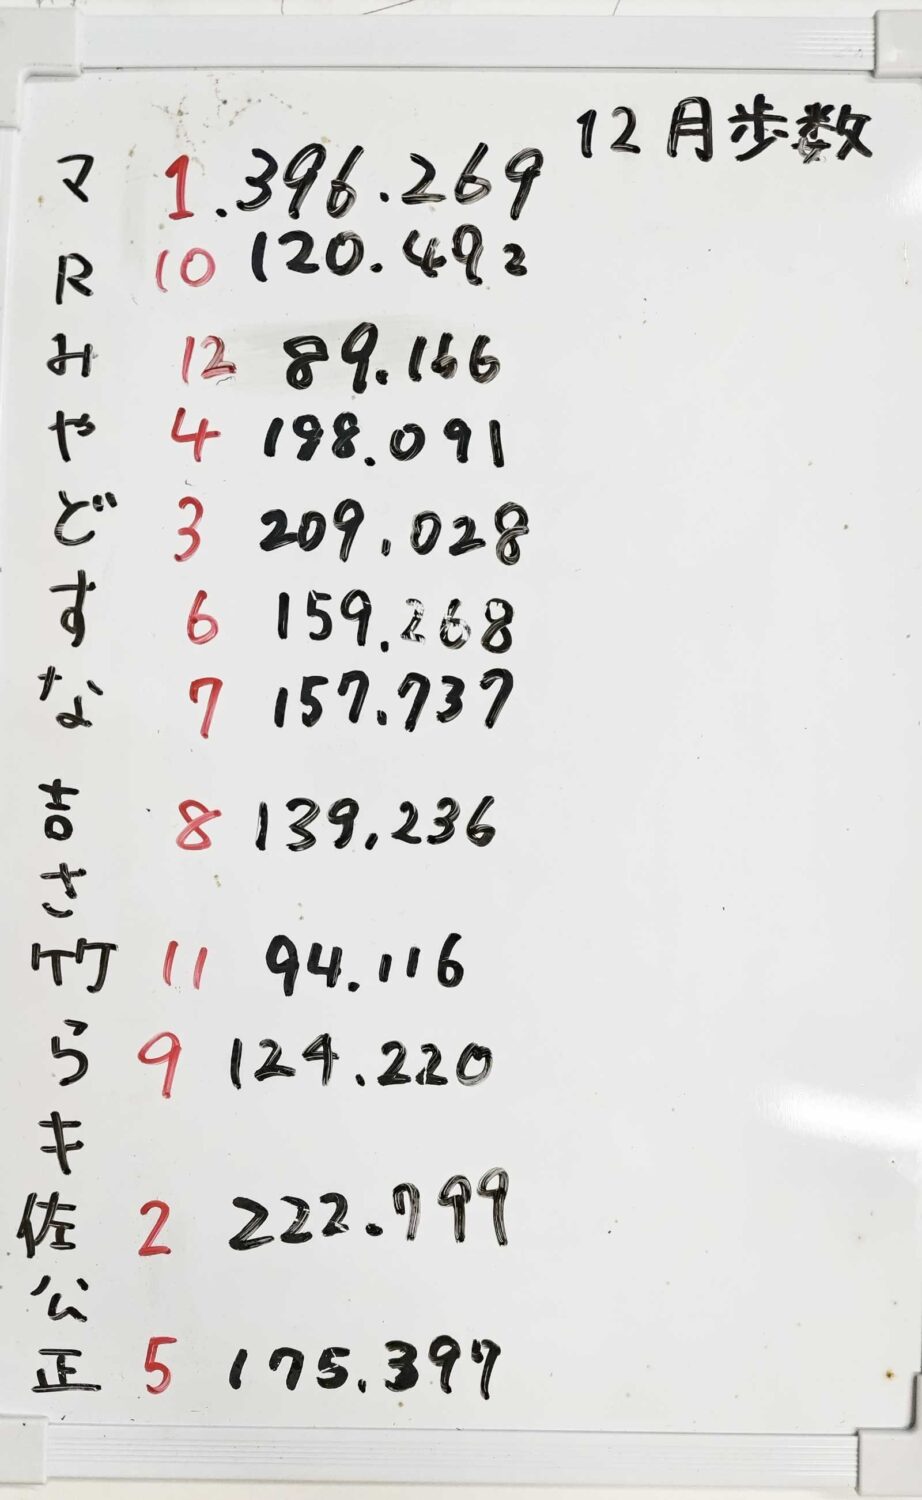 12月歩数
マ 1.396.269
R 10 120.492
み 12 89.166
や 4 198.091
ど 3 209.028
す 6 159.268
な 7 157.737
吉 8 139,236
さ
竹 11 94.116
ら 9 124.220
キ
佐 2 222.799
公
正 5 175.397